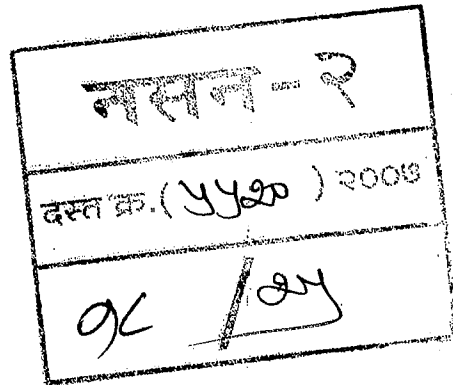 नसन - २
दस्त क्र.( ५५२० ) २००७
१८ / २५